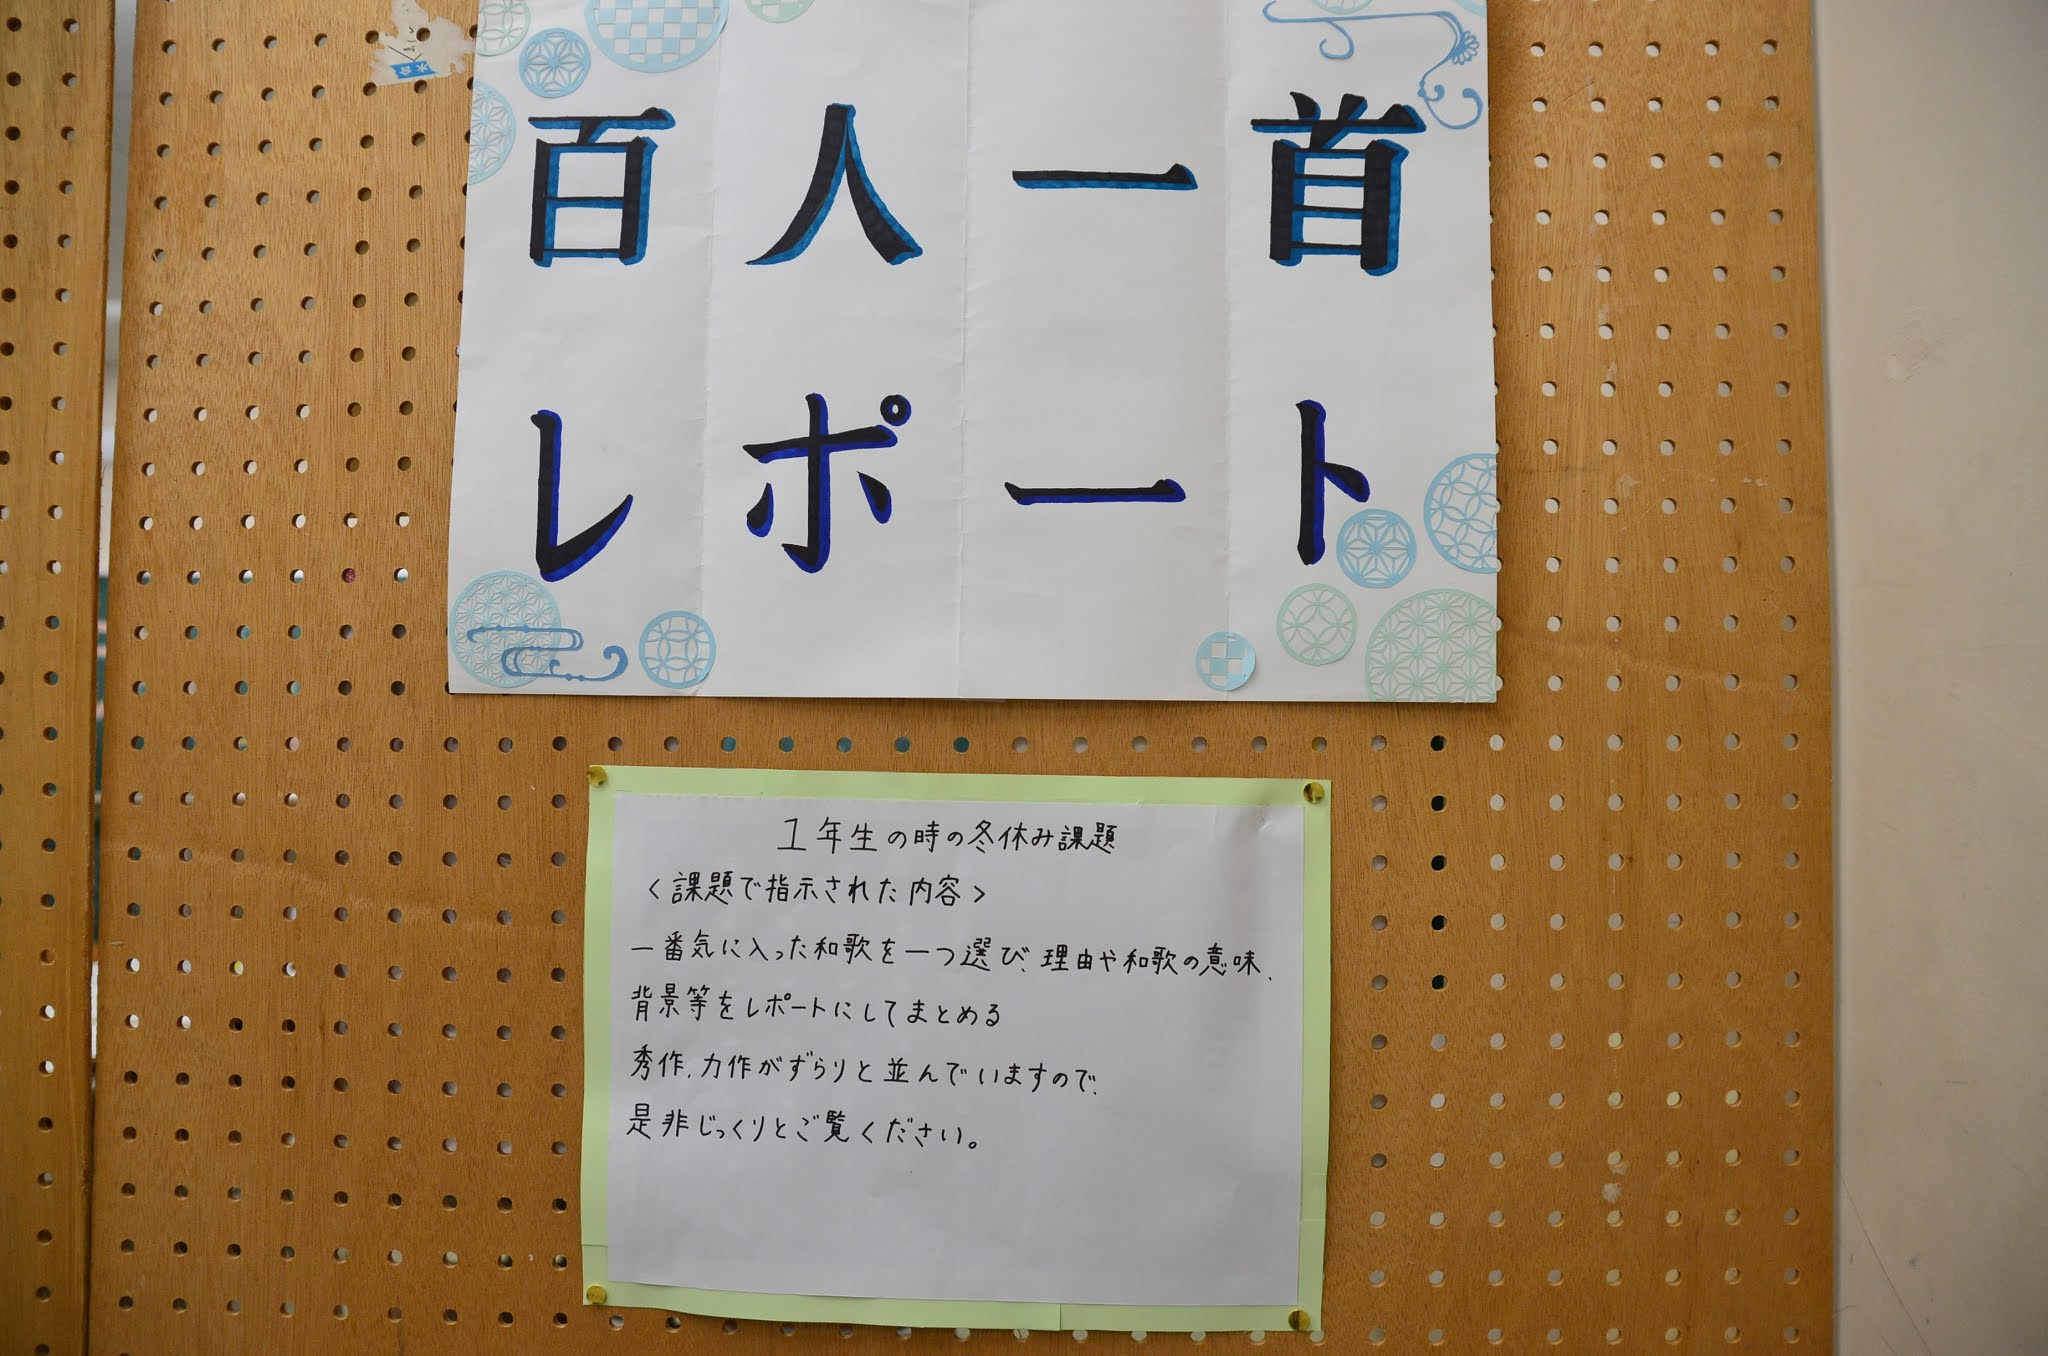 百人一首
レポート
1年生の時の冬休み課題
<課題で指示された内容>
一番気に入った和歌を一つ選び、理由や和歌の意味、
背景等をレポートにしてまとめる
秀作、力作がずらりと並んでいますので、
是非じっくりとご覧ください。